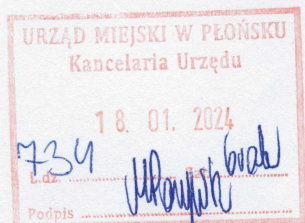 URZĄD MIEJSKI W PŁOŃSKU
Kancelaria Urzędu
18. 01. 2024
734
L.dz. ........... Zał.
Podpis ...........